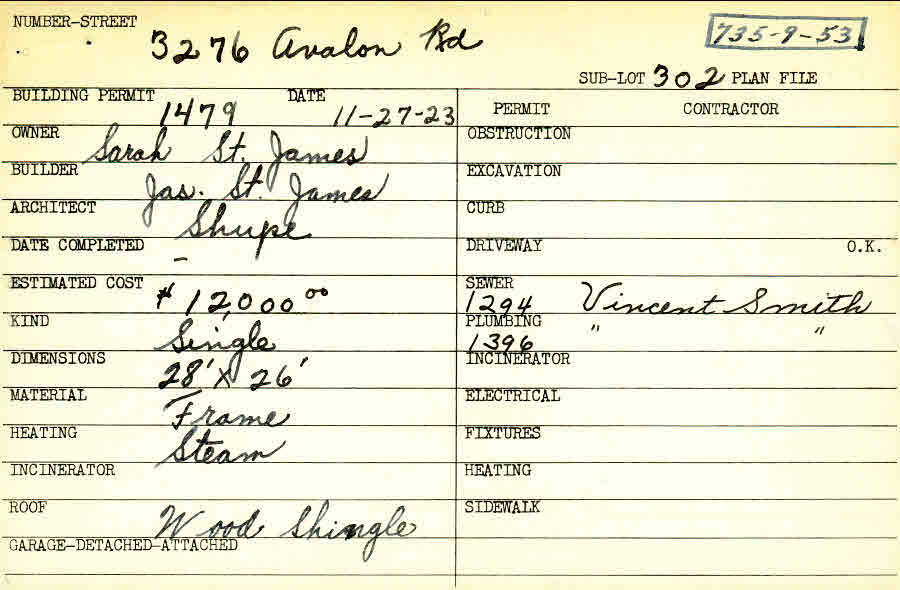 NUMBER-STREET
3276 Avalon Rd
735-9-53
SUB-LOT 302 PLAN FILE
BUILDING PERMIT 1479 DATE 11-27-23
PERMIT CONTRACTOR
OWNER Sarah St. James
OBSTRUCTION
BUILDER Jas. St. James
EXCAVATION
ARCHITECT Shupe
CURB
DATE COMPLETED -
DRIVEWAY O.K.
ESTIMATED COST $12,000 00
SEWER 1294 Vincent Smith
KIND Single
PLUMBING 1396 " "
DIMENSIONS 28' X 26'
INCINERATOR
MATERIAL Frame
ELECTRICAL
HEATING Steam
FIXTURES
INCINERATOR
HEATING
ROOF Wood Shingle
SIDEWALK
GARAGE-DETACHED-ATTACHED